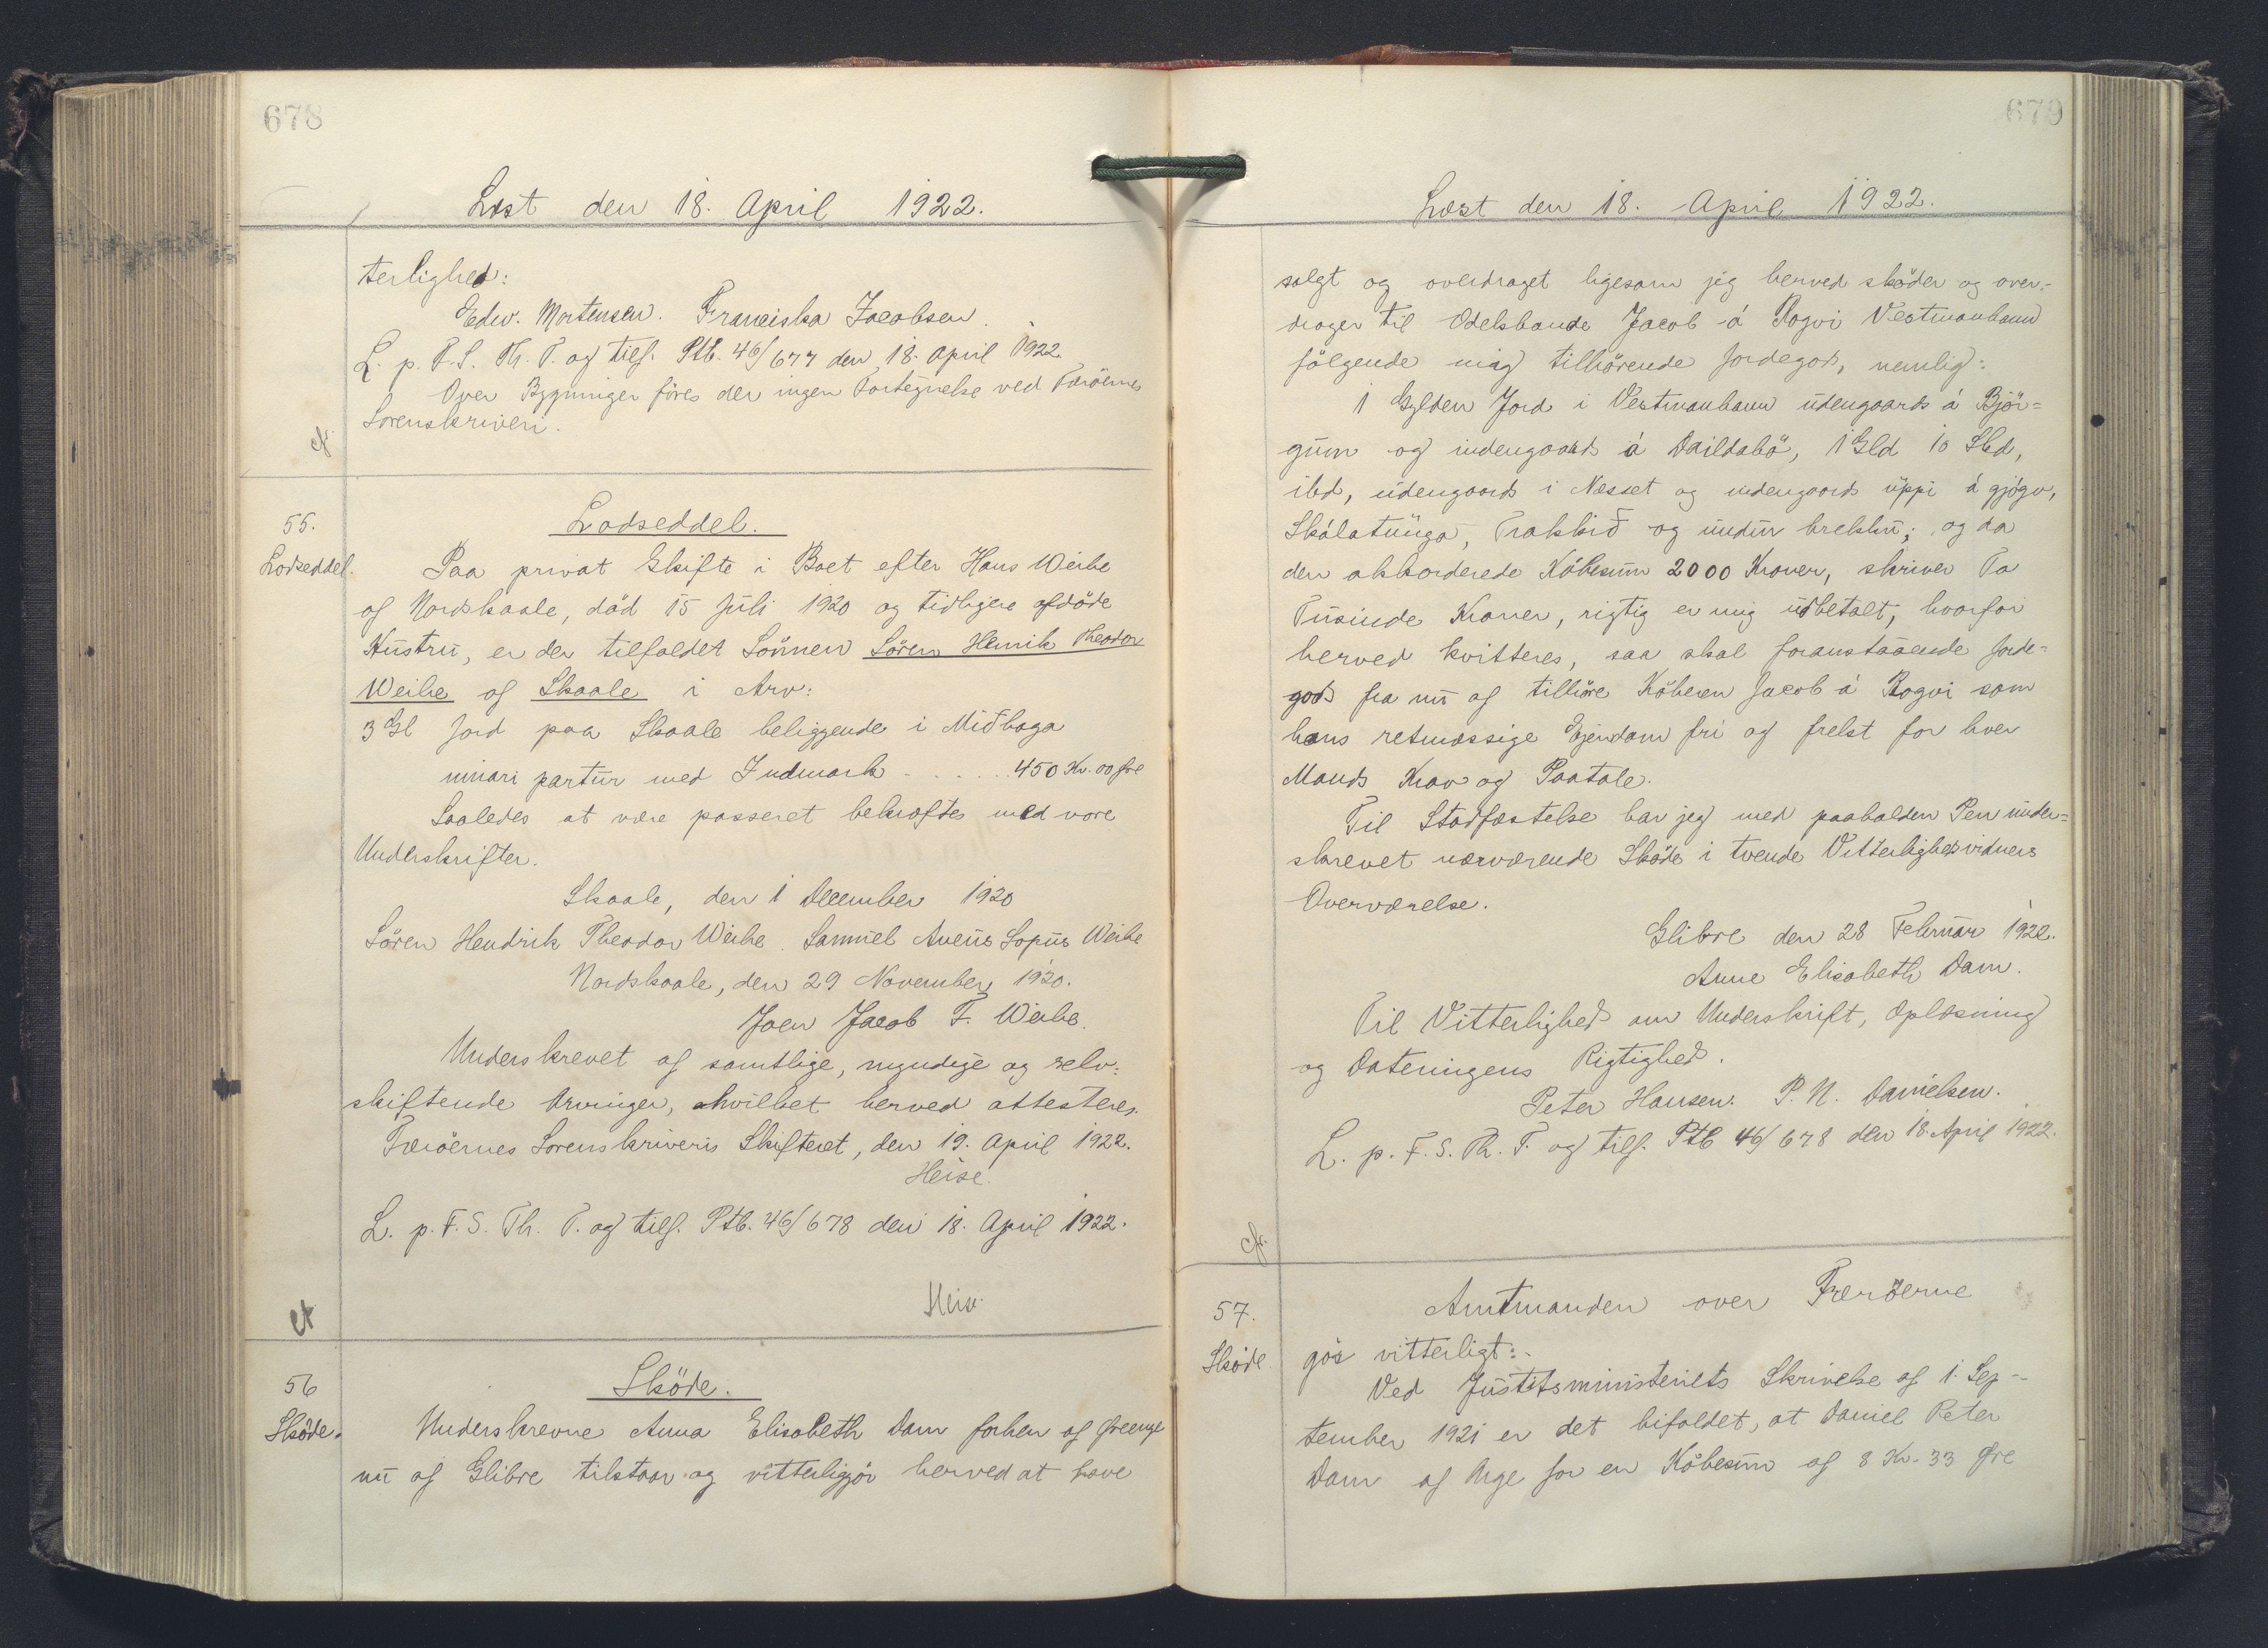 678
Læst den 18. April 1922.
terlighed:
Edw. Mortensen. Franciska Jacobsen.
L. p. F. S. Th. T. og tilf. Ptb. 46/677 den 18. April 1922.
Over Bygninger föres der ingen Fortegnelse ved Færöernes
Sorenskriveri.
cf.
55.
Lodseddel.
Lodseddel.
Paa privat Skifte i Boet efter Hans Weihe
af Nordskaale, död 15 Juli 1920 og tidligere afdöde
Hustru, er der tilfaldet Sönnen Sören Henrik Theodor
Weihe af Skaale i Arv:
3 Gl Jord paa Skaale beliggende i Miðhaga
minari partur med Indmark . . . . . 450 Kr. 00 Øre
Saaledes at være passeret bekræftes med vore
Underskrifter.
Skaale, den 1 December 1920
Sören Hendrik Theodor Weihe. Samuel Aneus Sopus Weihe
Nordskaale, den 29 November 1920.
Joen Jacob F. Weihe.
Underskrevet af samtlige, myndige og selv-
skiftende Arvinger, hvilket herved attesteres.
Færöernes Sorenskriveris Skifteret, den 19. April 1922.
Heise.
L. p. F. S. Th. T. og tilf. Ptb. 46/678 den 18. April 1922.
Heise.
cf.
56
Sköde.
Sköde.
Underskrevne Anna Elisabeth Dam forhen af Øreenge
nu af Glibre tilstaar og vitterliggör herved at have
679
Læst den 18. April 1922.
solgt og overdraget ligesom jeg herved sköder og over-
drager til Odelsbonde Jacob á Rogvi Vestmanhavn
fölgende mig tilhörende Jordegods, nemlig:
1 Gylden Jord i Vestmanhavn udengaards á Björ-
gum og indengaards á Daildabö, 1 Gld 10 Skd,
ibd, udengaards i Nesset og indengaards uppi á gjógv,
Skálatunga, Trakkið og undur brekku; og da
den akkorderede Købesum 2000 Kroner, skriver To
Tusinde Kroner, rigtig er mig udbetalt, hvorfor
herved kvitteres, saa skal foranstaaende Jorde-
gods fra nu af tilhöre Köberen Jacob á Rogvi som
hans retmæssige Ejendom fri og frelst for hver
Mands Krav og Paatale.
Til Stadfæstelse har jeg med paaholden Pen under-
skrevet nærværende Sköde i tvende Vitterlighedsvidners
Overværelse.
Glibre den 28 Februar 1922.
Anne Elisabeth Dam.
Til Vitterlighed om Underskrift, Oplæsning
og Dateringens Rigtighed.
Peter Hansen. P. N. Danielsen.
L. p. F. S. Th. T. og tilf. Ptb 46/678 den 18. April 1922.
cf.
57.
Sköde
Amtmanden over Færöerne
gör vitterligt:
Ved Justitsministeriets Skrivelse af 1. Sep-
tember 1921 er det bifaldet, at Daniel Peter
Dam af Ørge for en Köbesum af 8 Kr. 33 Øre